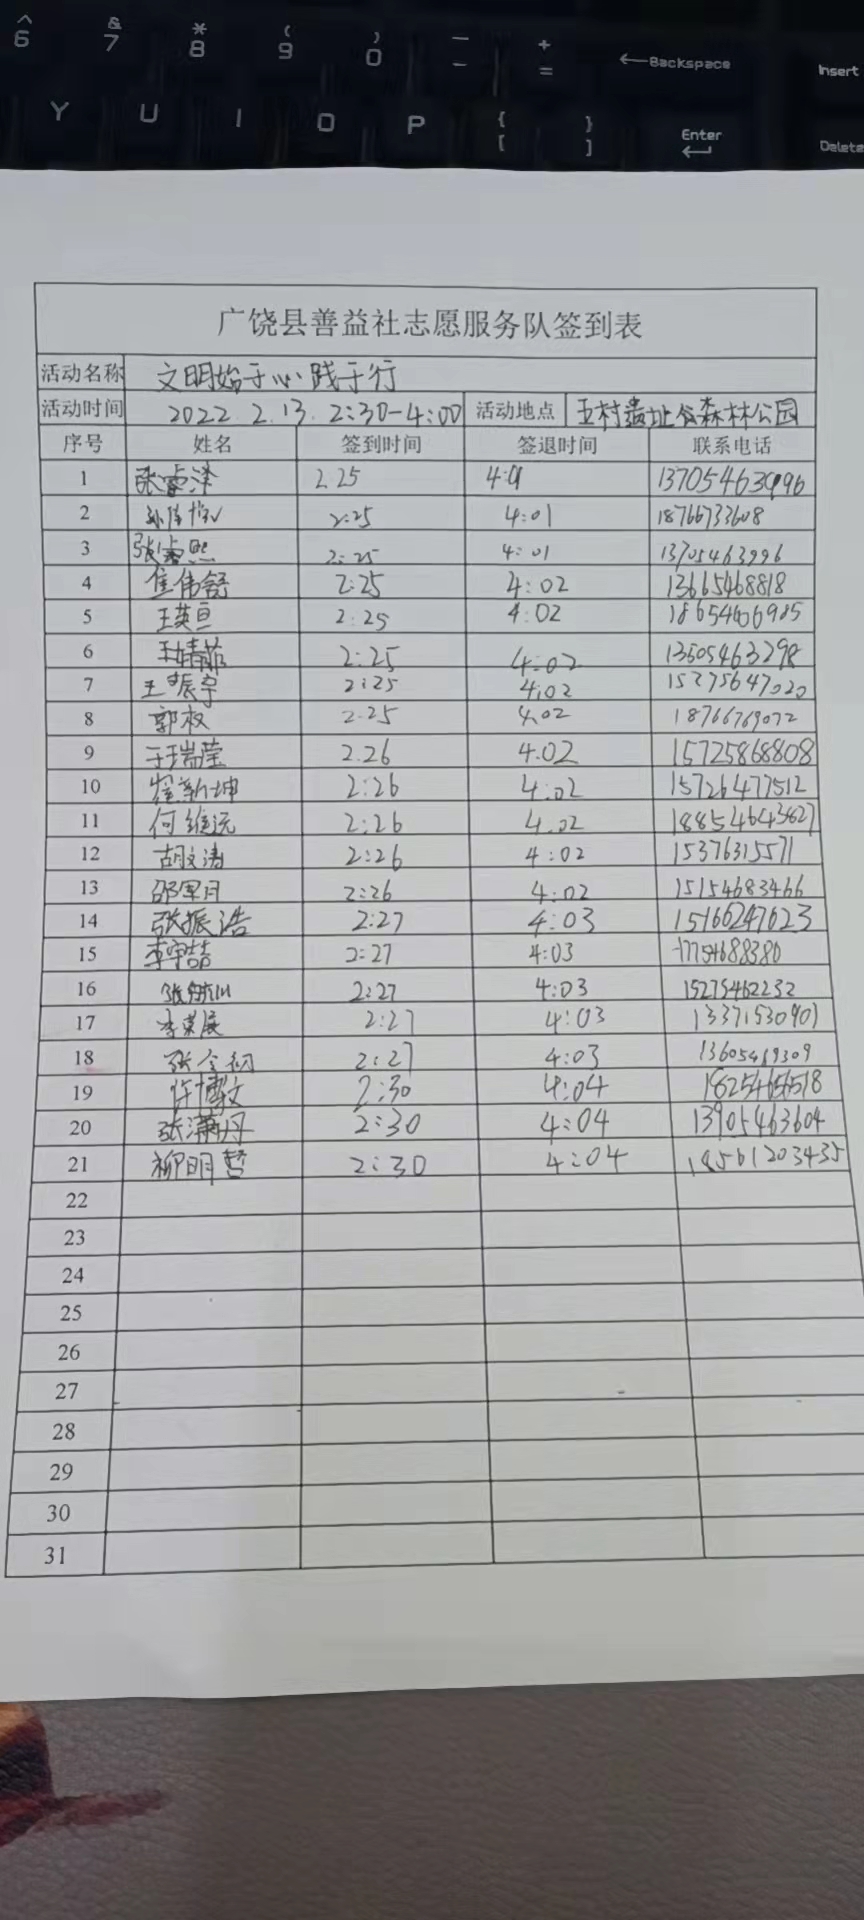 ^ & * ( ) — +
6 7 8 9 0 - = ←Backspace Insert
Y U I O P { [ } ] Enter Delete
广饶县善益社志愿服务队签到表
活动名称 文明始于心 践于行
活动时间 2022.2.13. 2:30-4:00 活动地点 五村遗址 森林公园
序号 姓名 签到时间 签退时间 联系电话
1 张睿泽 2.25 4:01
2 2:25 4:01 18766733608
3 张睿熙 2:25 4:01 13705463996
4 焦伟舒 2:25 4:02 13665468818
5 王英亘 2:25 4:02
6 王婧茹 2:25 4:02 13505463298
7 王振宇 2:25 4:02 15275647020
8 郭权 2.25 4.02 18766769072
9 于瑞莹 2.26 4.02 15725868808
10 翟新坤 2:26 4:02 15726477512
11 何维远 2:26 4.02 18854643627
12 胡文涛 2:26 4:02 15376315571
13 邵军月 2:26 4:02 15154683466
14 张振浩 2:27 4:03 15166247623
15 李宇喆 2:27 4:03 17754688380
16 2:27 4:03 15275462232
17 李荣展 2:27 4:03 13371530901
18 2:27 4:03 13605469309
19 许博文 2:30 4:04
20 张潇丹 2:30 4:04 13905463604
21 柳明哲 2:30 4:04 18561203435
22
23
24
25
26
27
28
29
30
31